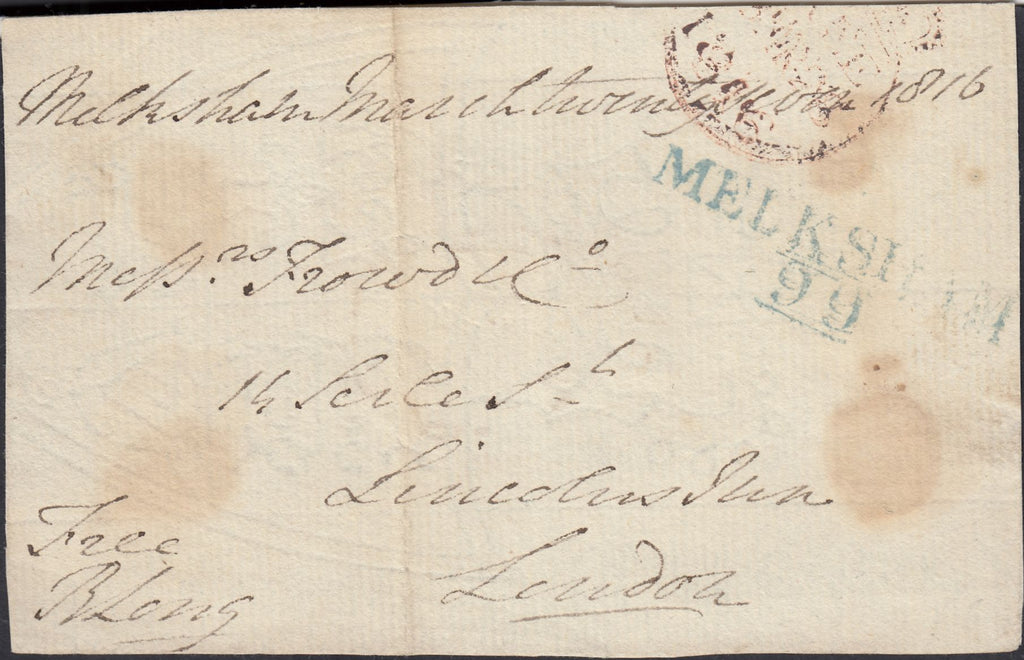 Melksham March twenty four 1816
MELKSHAM
99
Messrs Frowd & Co
14 Serle St
Lincolns Inn
London
Free
R Long